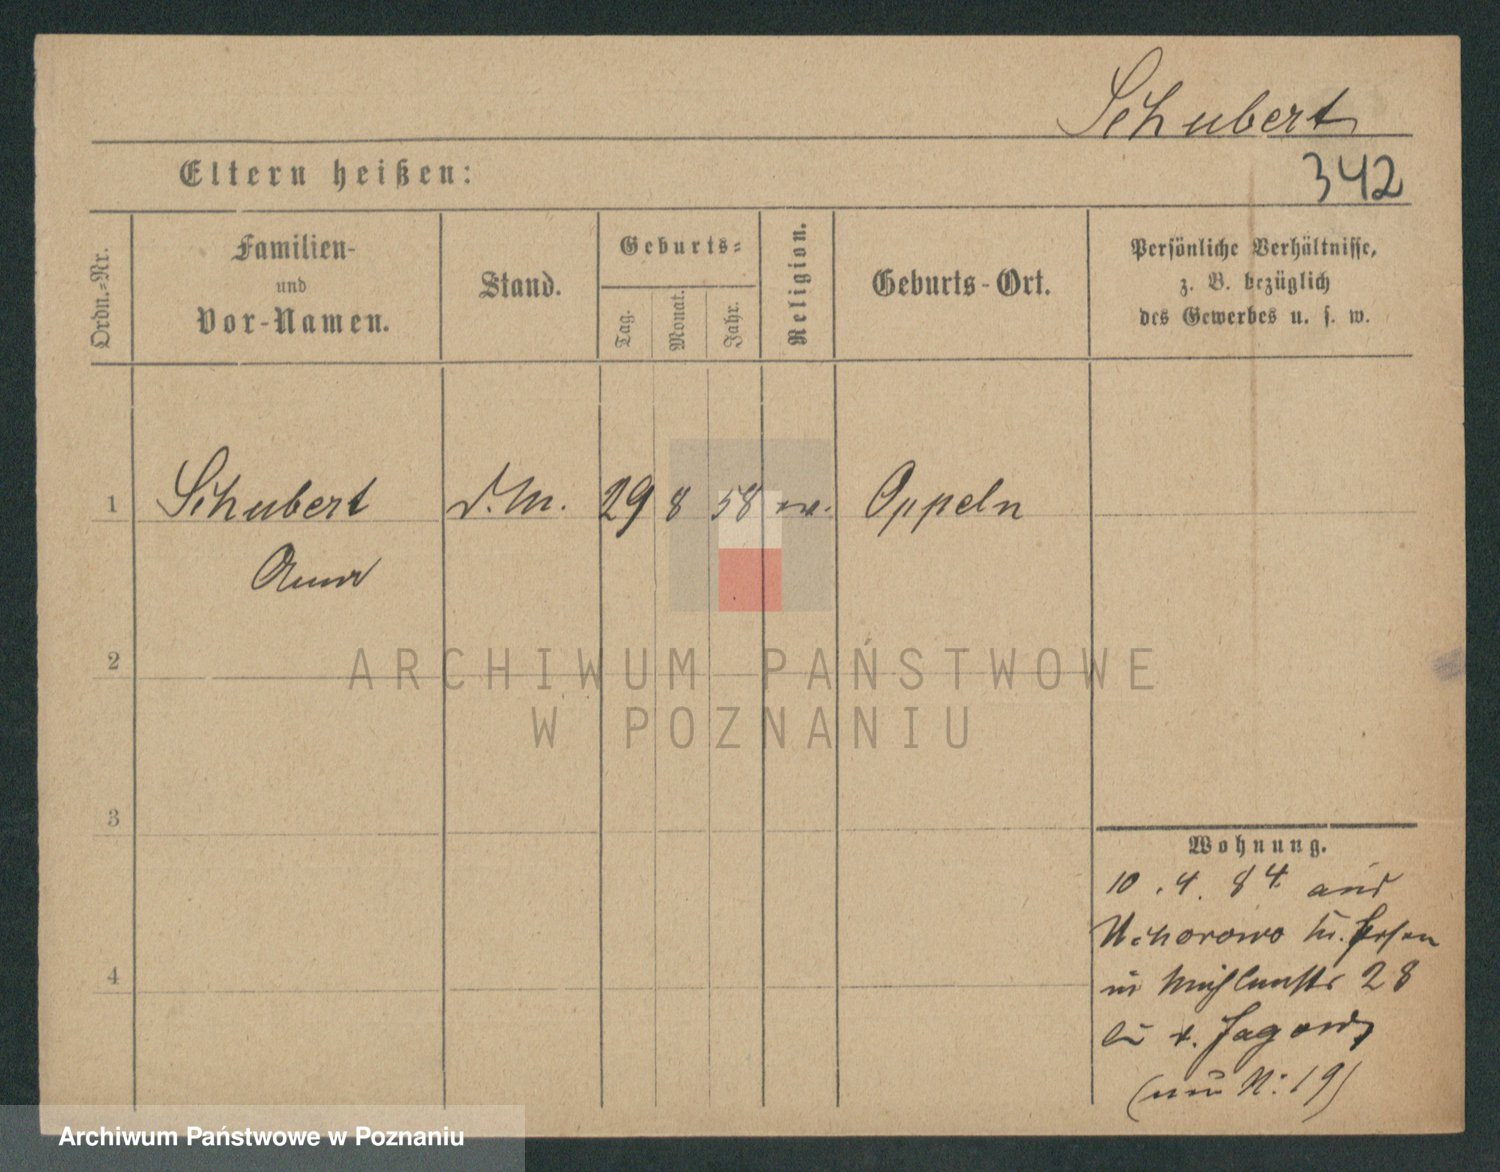 Schubert
342
Eltern heißen:
Ordn.-Nr.
Familien-
und
Vor-Namen.
Stand.
Geburts-
Tag.
Monat.
Jahr.
Religion.
Geburts-Ort.
Persönliche Verhältnisse,
z. B. bezüglich
des Gewerbes u. s. w.
1 Schubert d. M. 29 8 58 ev. Oppeln
Anna
2
3
4
ARCHIWUM PAŃSTWOWE
W POZNANIU
Wohnung.
10.4.84 aus
Uchorowo
in Mühlenstr 28
v. Jagow
(neu N: 19)
Archiwum Państwowe w Poznaniu